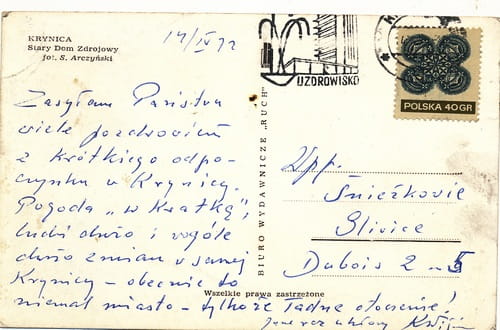 KRYNICA
Stary Dom Zdrojowy
fot. S. Arczyński
14/IV 72
UZDROWISKO
POLSKA 40 GR
Zasyłam Państwu
wiele pozdrowień
z krótkiego odpo-
czynku w Krynicy.
Pogoda „w kratkę",
ludzi dużo i wogóle
dużo zmian w samej
Krynicy – obecnie to
niemal miasto – tylko że ładne otoczenie!
Jeszcze ukłony
BIURO WYDAWNICZE „RUCH"
Wpp.
Śnieżkowie
Gliwice
Dubois 2 – 5
Wszelkie prawa zastrzeżone